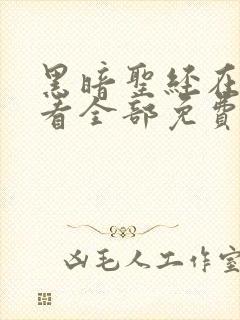 黑暗聖經在
看全部免費
凶毛人工作室